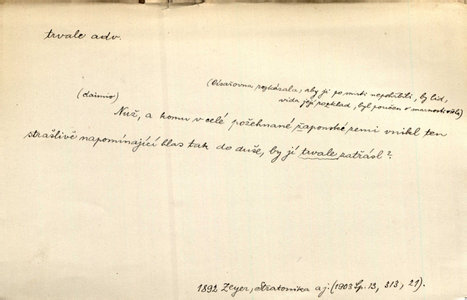 trvale adv.
(Císařovna rozkázala, aby ji po smrti nepohřbili, by lid,
vida její rozklad, byl poučen o marnosti světa)
(daimio)
Nuž, a komu v celé požehnané žaponské zemi vnikl ten
strašlivě napomínající hlas tak do duše, by jí trvale zatřásl?
1892 Zeyer, Stratonika a j. (1903 Sp. 13, 313, 21).